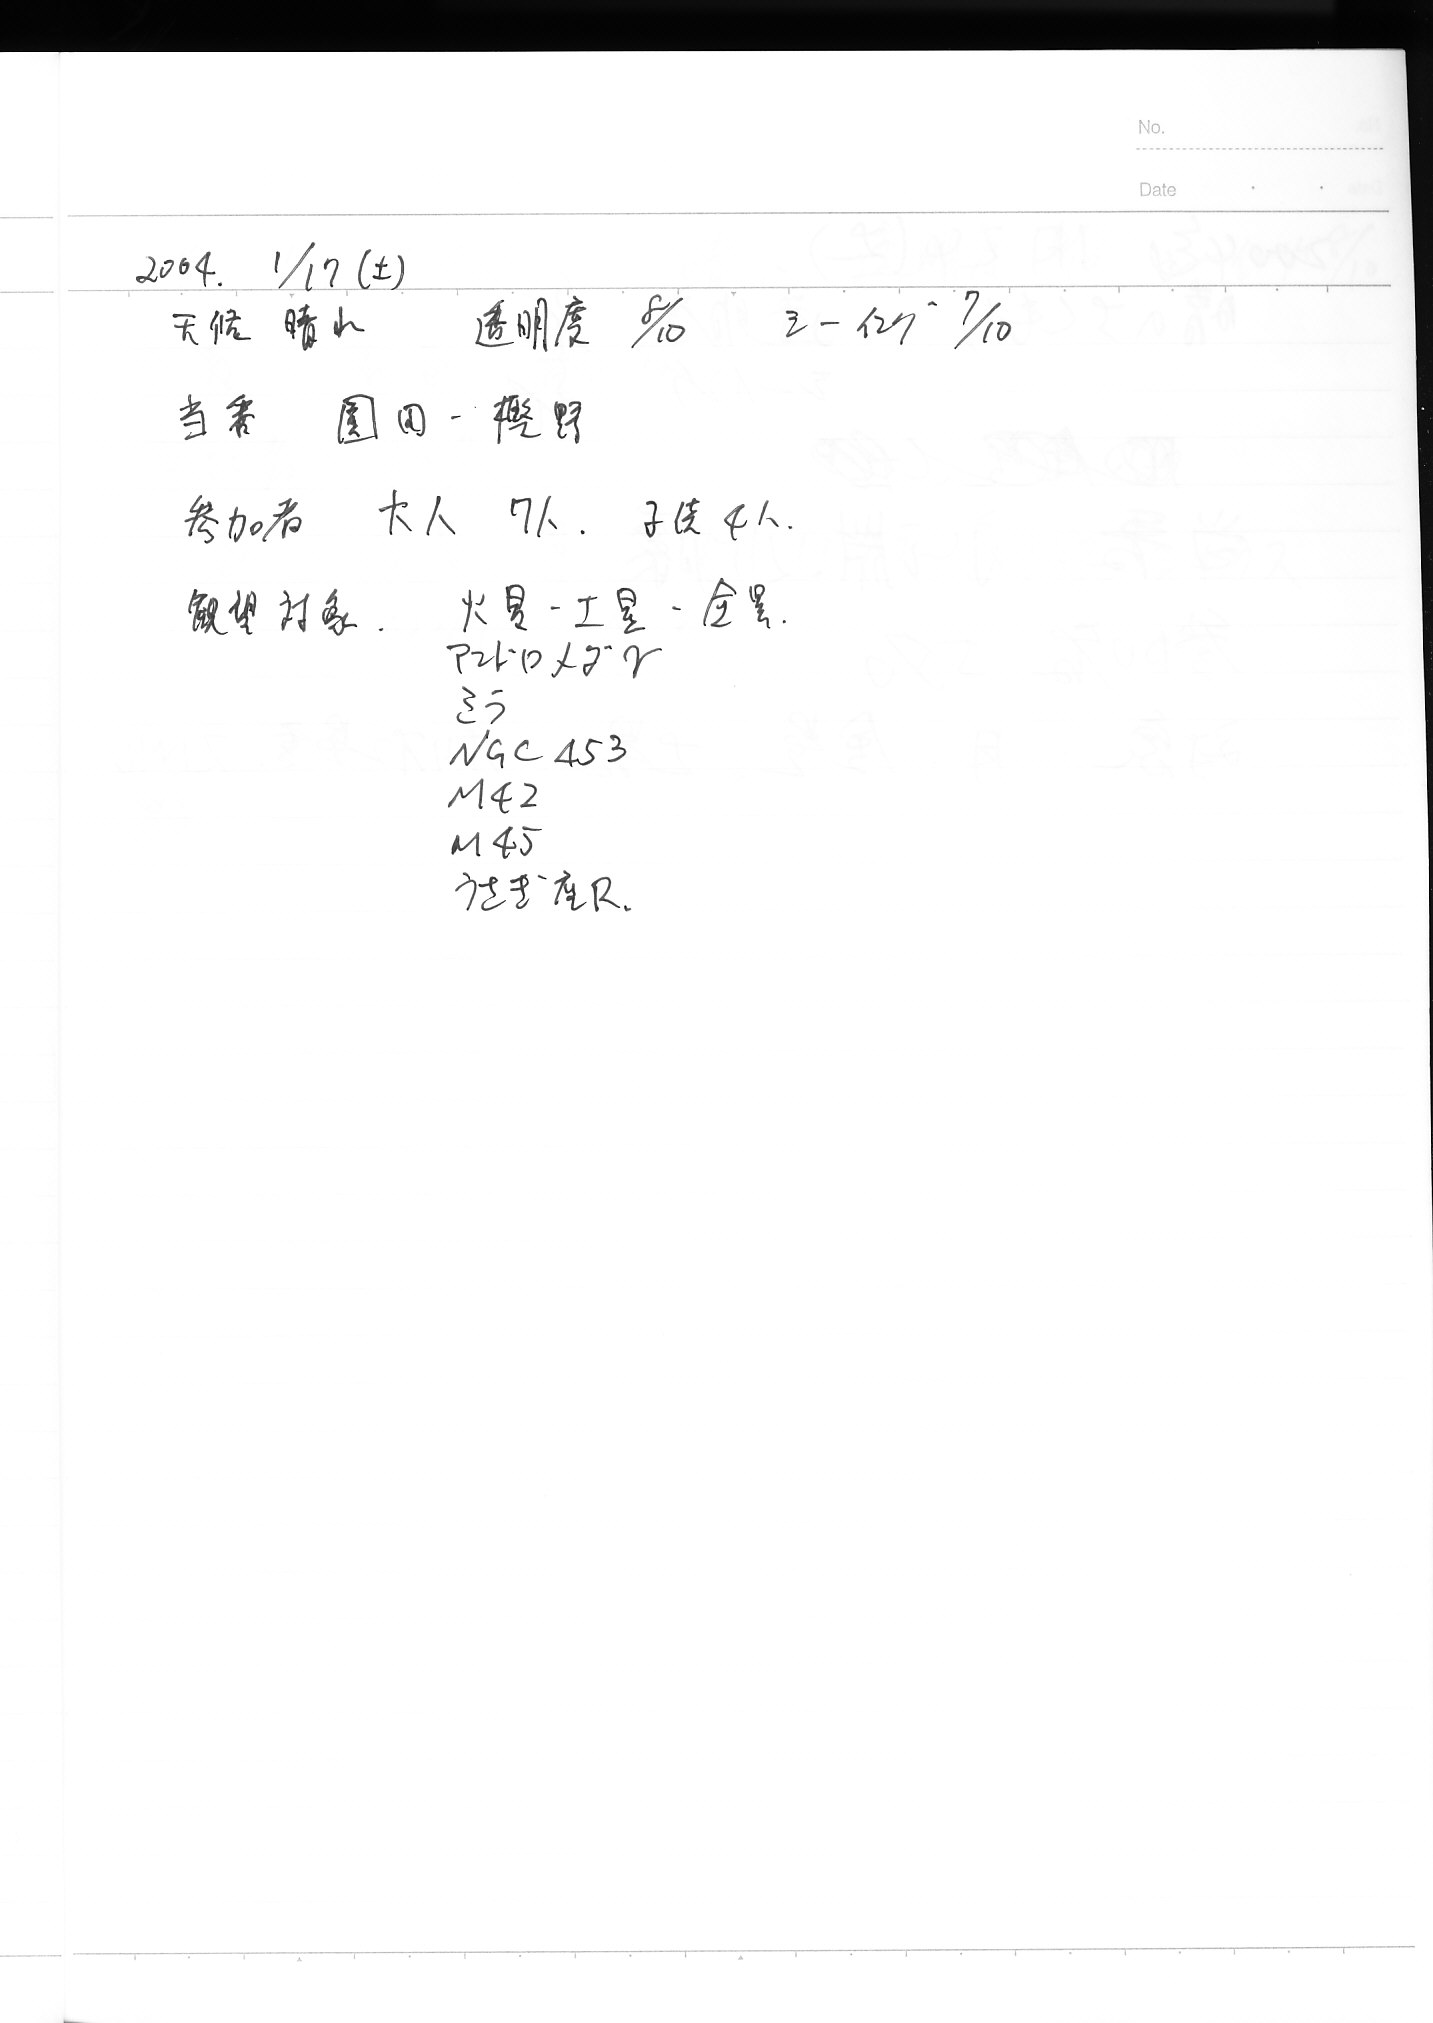 No.
Date
2004. 1/17 (土)
天候 晴れ 透明度 8/10 シーイング 7/10
当番 園田 - 樫野
参加者 大人 7人. 子供 4人.
観望対象. 火星 - 土星 - 金星.
アンドロメダ
ミラ
NGC 453
M42
M45
うさぎ座R.